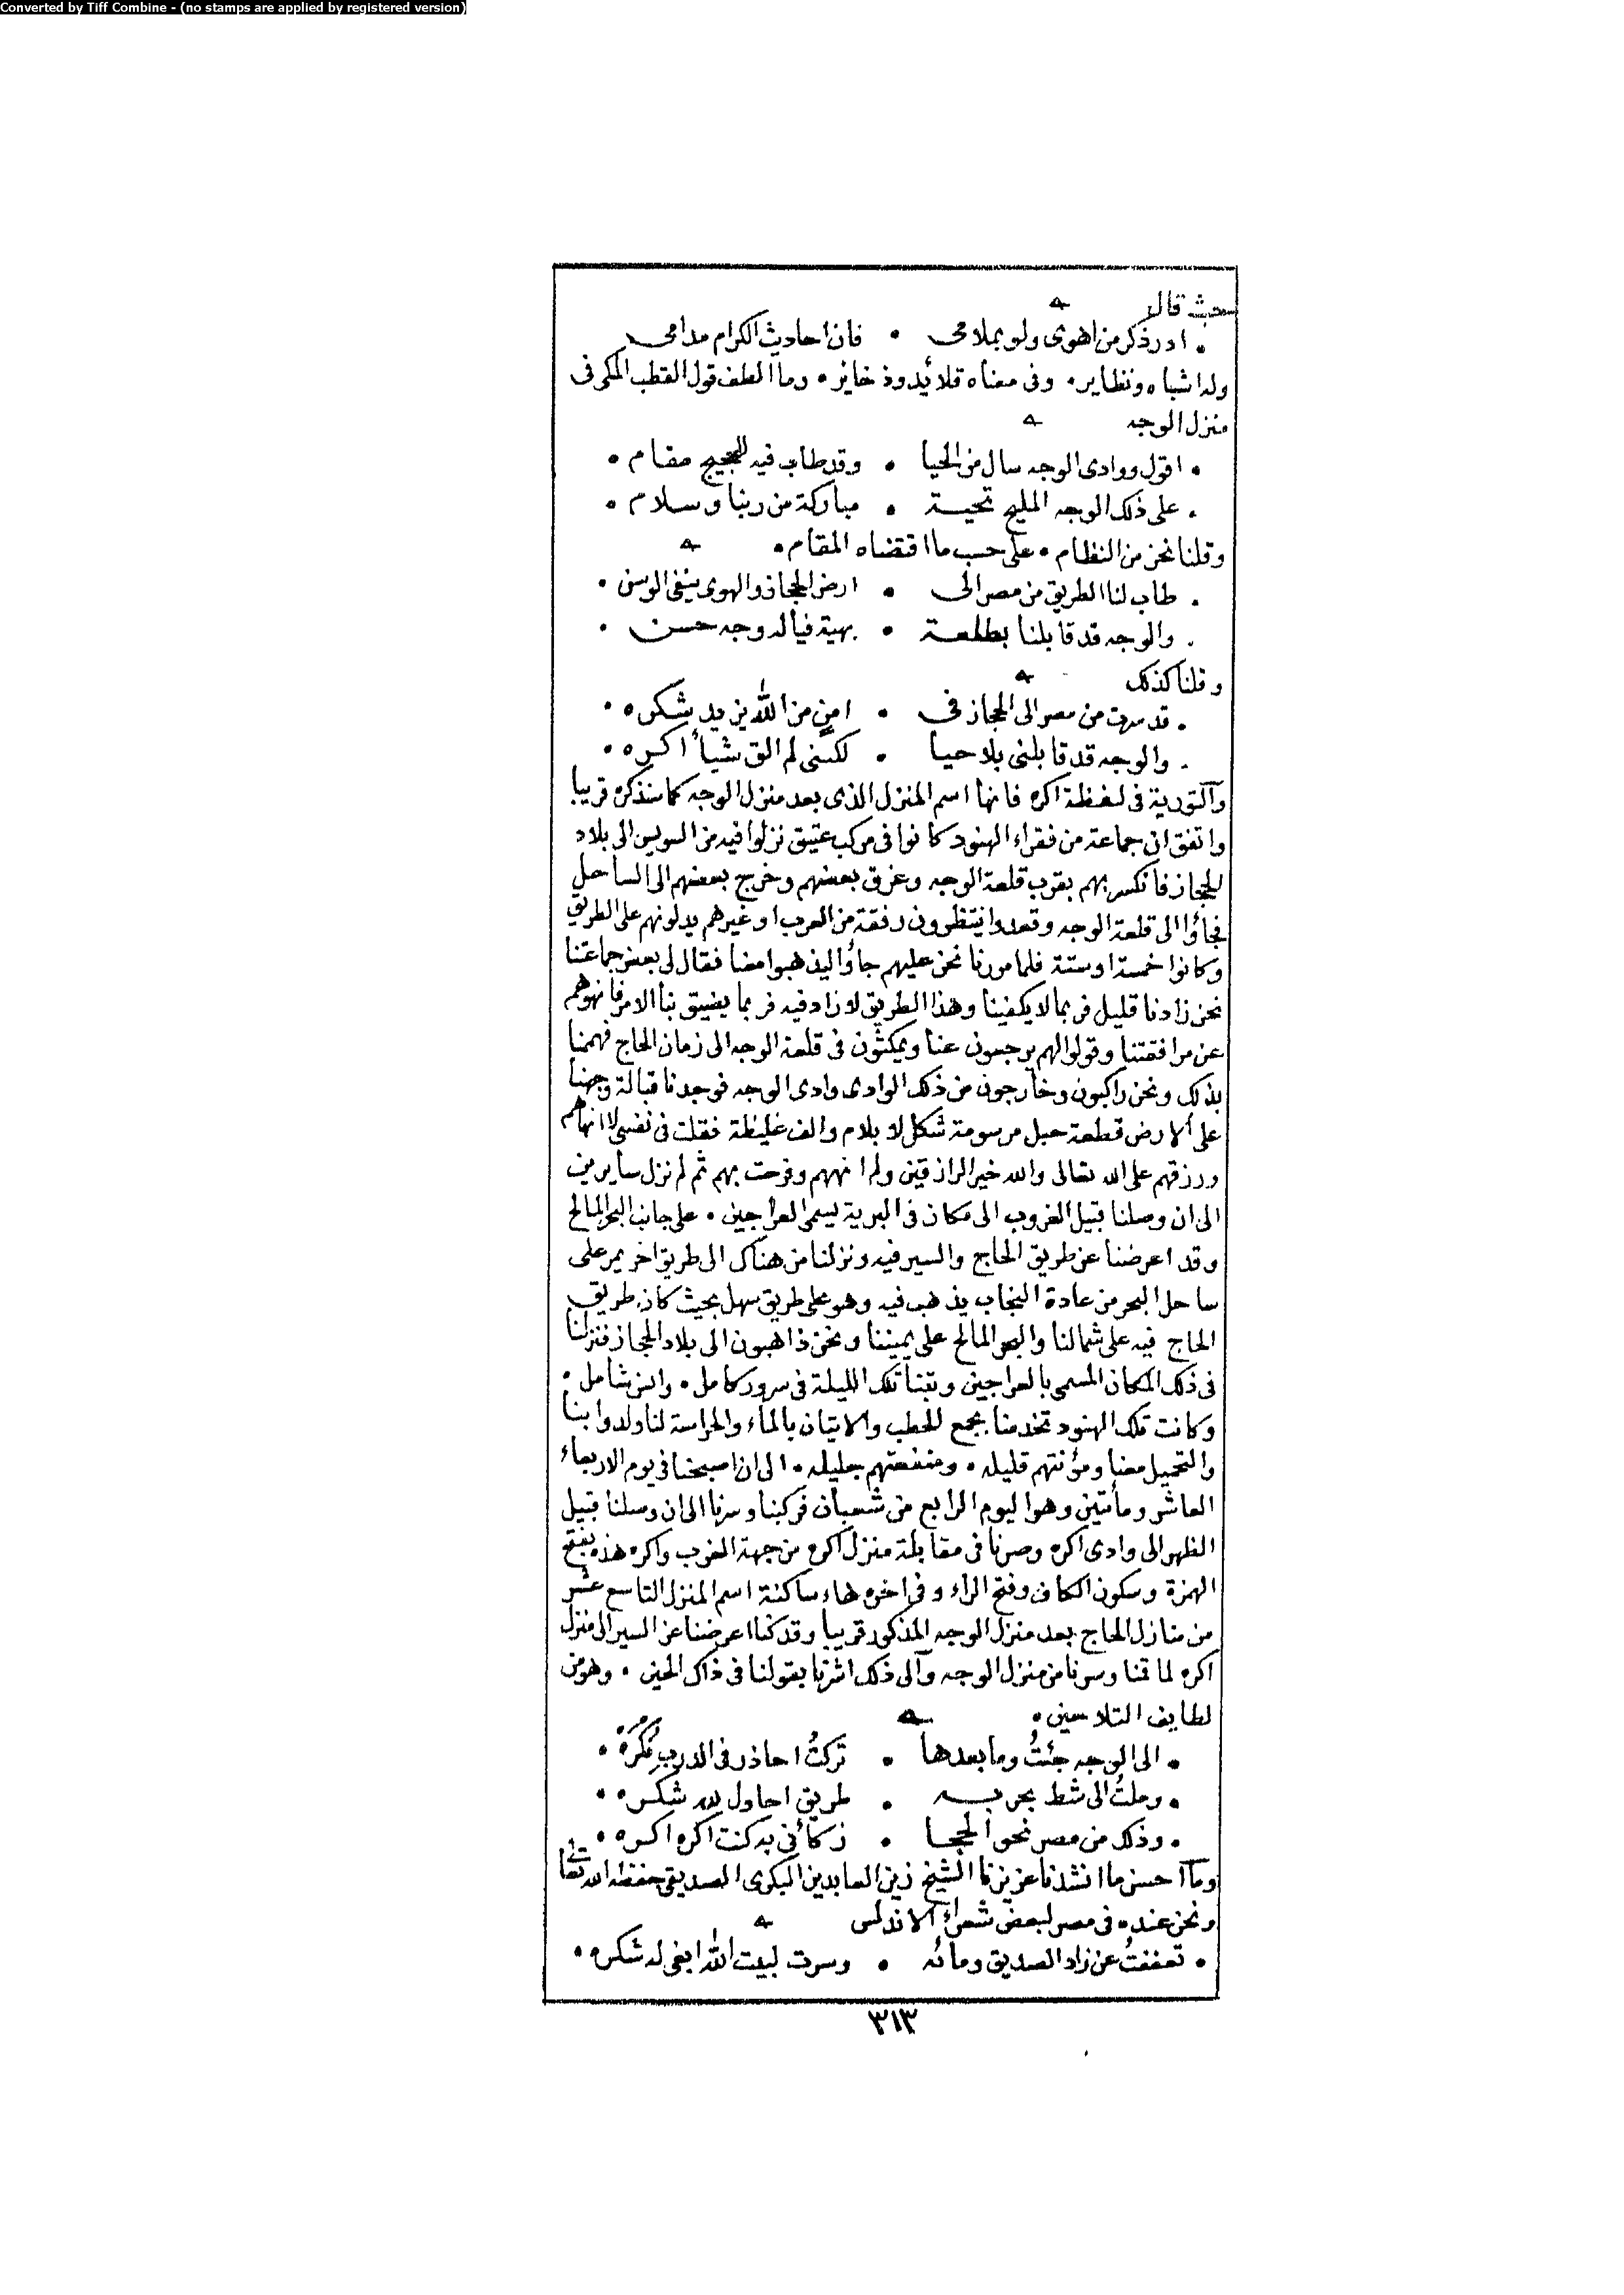 Converted by Tiff Combine - (no stamps are applied by registered version)
حيث قال
• ادر ذكر من اهوى ولو بملامى • فان احاديث الكرام مدامى
وله اشباه ونظاير • وفى معناه قلائد وذخاير • وما الطف قول القطب المكى فى
منزل الوجه
• اقول ووادى الوجه سال من الحيا • وقد طاب فيه للحجيج مقام •
• على ذلك الوجه المليح تحية • مباركة من ربنا وسلام •
وقلنا نحن من النظام • على حسب ما اقتضاه المقام •
• طاب لنا الطريق من مصر الى • ارض الحجاز والهوى ينفى الوسن •
• والوجه قد قابلنا بطلعة • بهية فياله وجه حسن •
وقلنا كذلك
• قد سرت من مصر الى الحجاز فى • امنٍ من الله يزيد شكره •
• والوجه قد قابلنى بلا حيا • لكننى لم الق شيأ اكره •
والتورية فى لفظة اكره فانها اسم المنزل الذى بعد منزل الوجه كما سنذكره قريبا
واتفق ان جماعة من فقراء الهنود كانوا فى مركب عتيق نزلوا فيه من السويس الى بلاد
الحجاز فانكسر بهم بقرب قلعة الوجه وغرق بعضهم وخرج بعضهم الى الساحل
فجاؤا الى قلعة الوجه وقعدوا ينتظرون رفقة من العرب او غيرهم يدلونهم على الطريق
وكانوا خمسة او ستة فلما مررنا نحن عليهم جاؤا ليذهبوا معنا فقال لى بعض جماعتنا
نحن زادنا قليل فربما لا يكفينا وهذا الطريق لا زاد فيه فربما يضيق بنا الامر فانهوهم
عن مرافقتنا وقولوا لهم يرجعون عنا ويمكثون فى قلعة الوجه الى زمان الحاج فهممنا
بذلك ونحن راكبون وخارجون من ذلك الوادى وادى الوجه فوجدنا قبالة وجهنا
على الارض قطعة حبل مرسومة شكل لا بلام والف غليظة فقلت فى نفسى لا انهاهم
ورزقهم على الله تعالى والله خير الرازقين ولم انههم وفرحت بهم ثم لم نزل سايرين
الى ان وصلنا قبيل الغروب الى مكان فى البرية يسمى العراجين • على جانب البحر المالح
وقد اعرضنا عن طريق الحاج والسير فيه ونزلنا من هناك الى طريق اخر يمر على
ساحل البحر من عادة النجاب يذهب فيه وهو على طريق سهل بحيث كان طريق
الحاج فيه على شمالنا والبحر المالح على يميننا ونحن ذاهبون الى بلاد الحجاز فنزلنا
فى ذلك المكان المسمى بالعراجين وبتنا تلك الليلة فى سرور كامل • وانس شامل •
وكانت تلك الهنود تخدمنا بجمع الحطب والاتيان بالماء والحراسة لنا ولدوابنا
والتحميل معنا ومؤنتهم قليله • ومنفعتهم جليله • الى ان اصبحنا فى يوم الاربعاء
العاشر ومأتين وهو اليوم الرابع من شعبان فركبنا وسرنا الى ان وصلنا قبيل
الظهر الى وادى اكره وصرنا فى مقابلة منزل اكره من جهة الغرب واكره هذه بفتح
الهمزة وسكون الكاف وفتح الراء وفى اخره هاء ساكنة اسم المنزل التاسع عشر
من منازل الحاج بعد منزل الوجه المذكور قريبا وقد كنا اعرضنا عن السير الى منزل
اكره لما قمنا وسرنا من منزل الوجه والى ذلك اشرنا بقولنا فى ذاك الحين • وهو من
لطايف التلاحين •
• الى الوجه جئتُ وما بعدها • تركتُ احاذر فى الدرب مَكْرَهْ •
• وملتُ الى شط بحر به • طريق احاول لله شكره •
• وذلك من مصر نحو الحجا • ز كأنى به كنت اكره اكره •
وما احسن ما انشدنا عزيزنا الشيخ زين العابدين البكرى الصديقى حفظه الله تعالى
ونحن عنده فى مصر لبعض شعراء الاندلس
• تعففتُ عن زاد الصديق ومائه • وسرت لبيت الله ابغى له شكره •
٣١٣